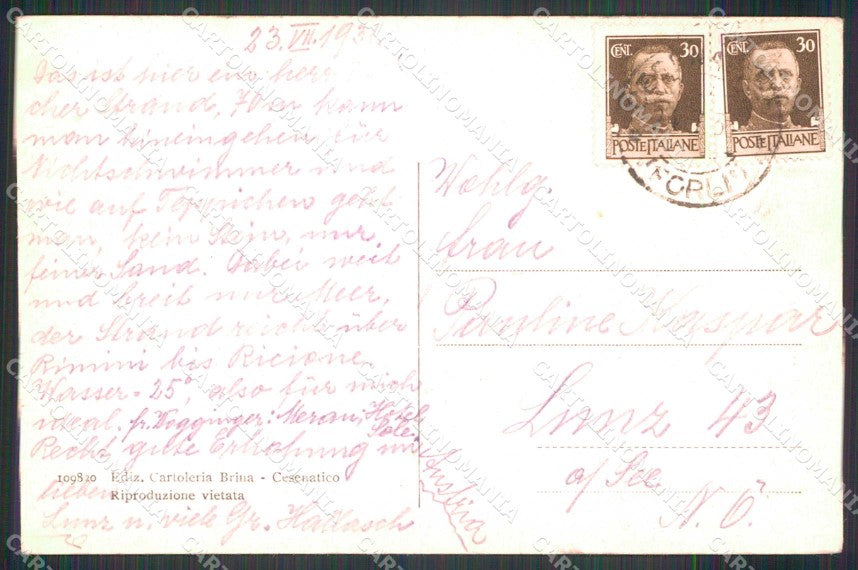 23.VII.193
Das ist hier ein herr
cher Strand, 70 m kann
man hineingehen für
Nichtschwimmer und
wie auf Teppichen geht
man, kein Stein, nur
feiner Sand. Dabei weit
und breit nur Meer,
der Strand reicht über
Rimini bis Ricione
Wasser - 25°, also für mich
ideal. fr. Wogginger: Meran, Hotel
Recht gute Erholung im
lieben
Lunz u. viele Gr. Hallasch
109820 Ediz. Cartoleria Brina - Cesenatico
Riproduzione vietata
CENT. 30
POSTE ITALIANE
CENT. 30
POSTE ITALIANE
FORLI
Wohlg.
Frau
Pauline Kaspar
Lunz 43
a/See
N.Ö.
Austria
CARTOLINOMANIA